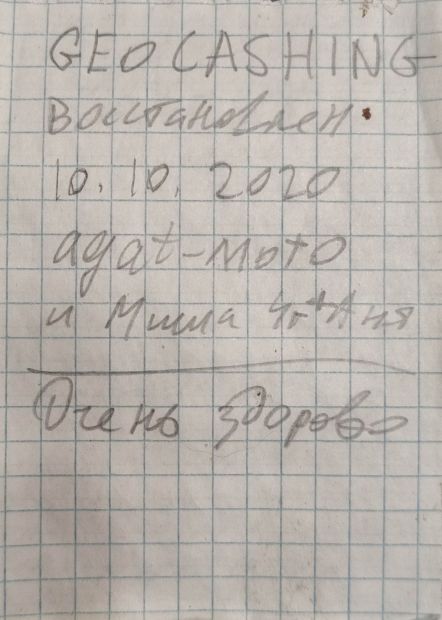 GEOCASHING
Восстановлен
10.10.2020
agat-мото
и Миша + Аня
Очень здорово